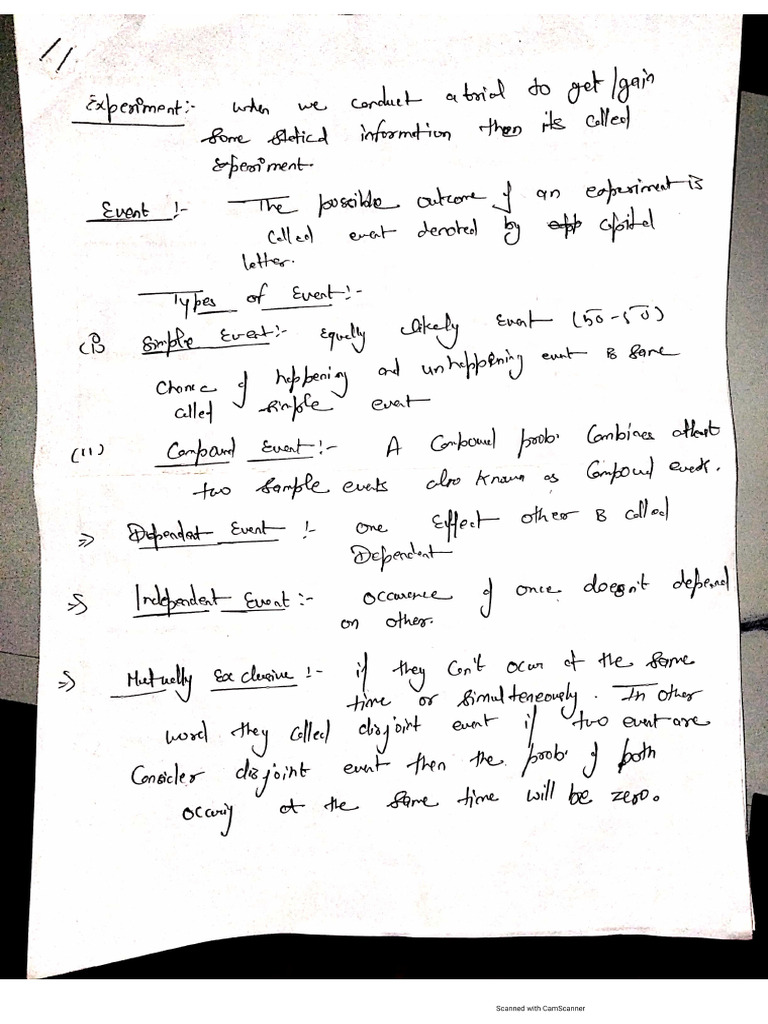 11
Experiment:- when we conduct a trial to get/gain
some statical information then its called
experiment.
Event :- The possible outcome of an experiment is
called event denoted by capital
letter.
Types of Event:-
(i) Simple Event:- Equally likely Event (50-50)
Chance of happening and unhappening event is same
called simple event
(11) Compound Event:- A Compound prob. Combines atleast
two sample events also known as Compound event.
=> Dependent Event :- one Effect other is called
Dependent
=> Independent Event:- occurence of once doesn't depend
on other.
=> Mutually Exclusive :- if they can't occur at the same
time or simultaneously. In other
word they called disjoint event if two event are
Consider disjoint event then the prob. of both
occurig at the same time will be zero.
Scanned with CamScanner